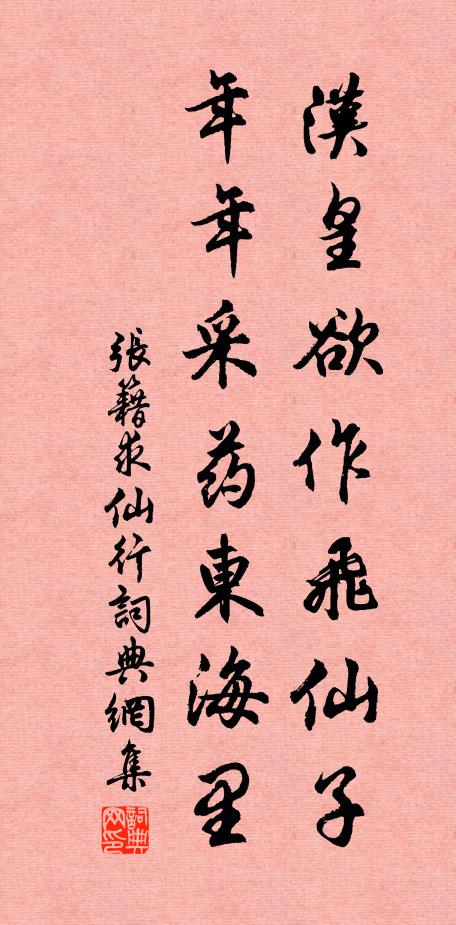 漢皇欲作飛仙子
年年采药東海里
張籍求仙行詞典網集
詞典网印